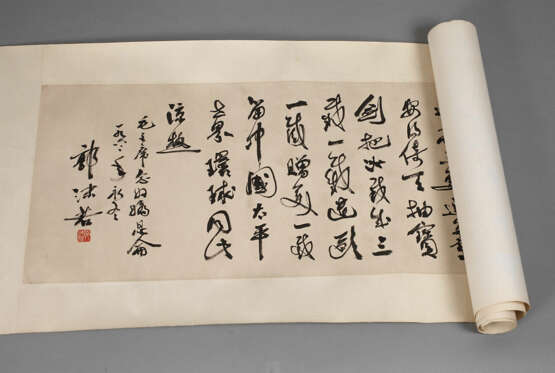 安得倚天抽寶
劍把汝裁三
截一截遺歐
一截贈美一截
留中國太平
世界環球同此
涼熱
毛主席念奴嬌昆侖
一九六年
郭沫若